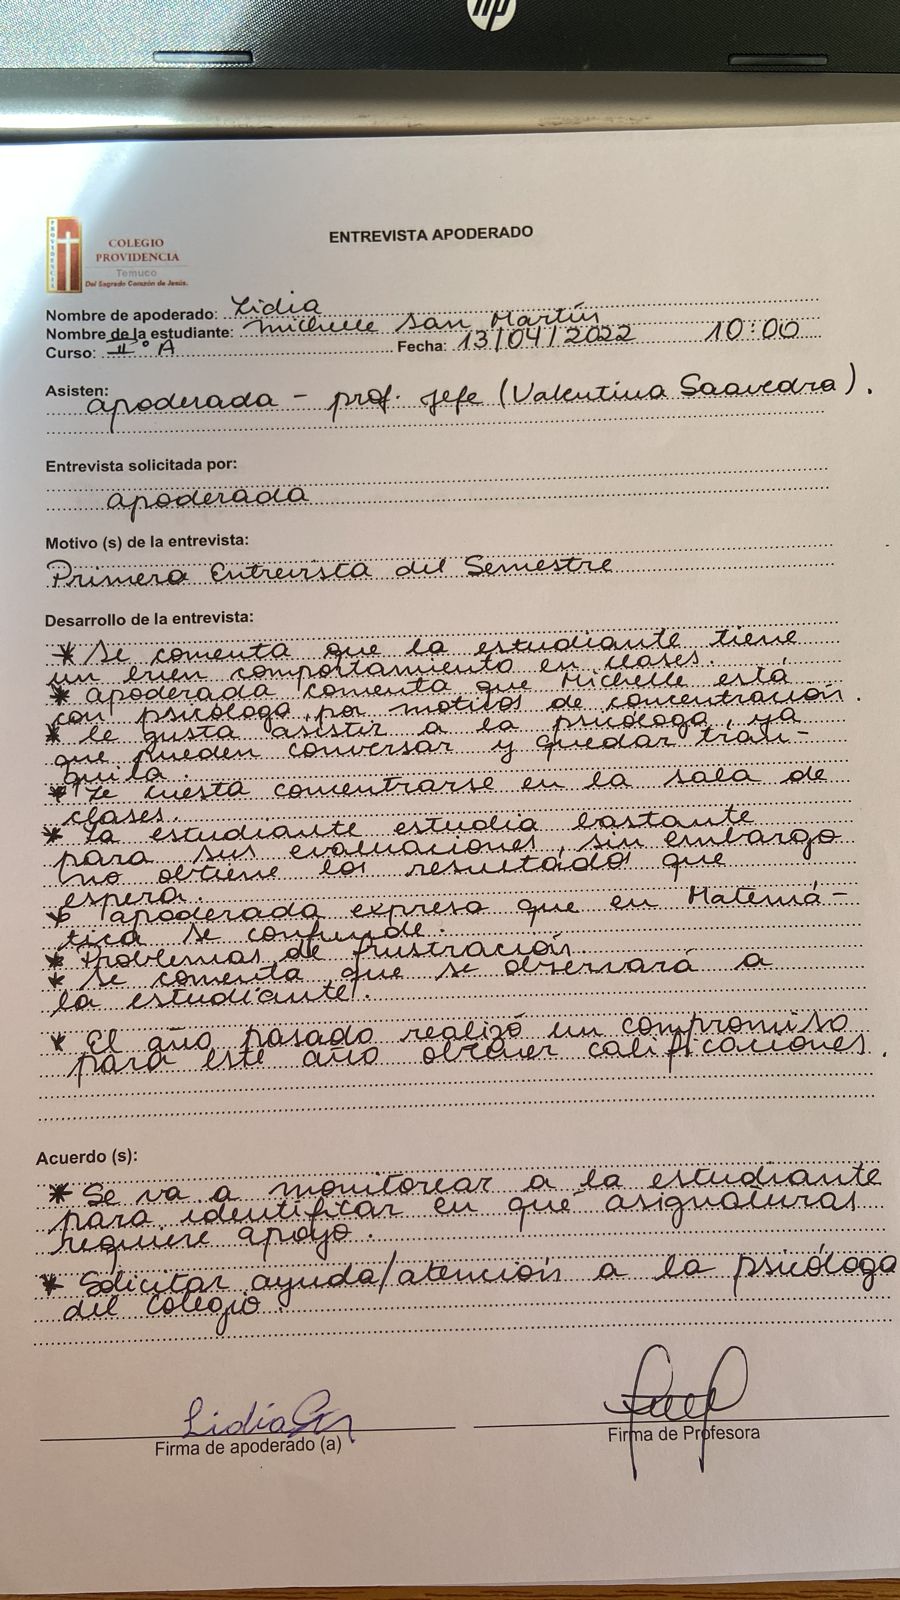 hp
PROVIDENCIA
COLEGIO
PROVIDENCIA
Temuco
Del Sagrado Corazón de Jesús.
ENTREVISTA APODERADO
Nombre de apoderado: Lidia
Nombre de la estudiante: Michelle San Martín
Curso: II° A Fecha: 13/04/2022 10:00
Asisten:
apoderada - prof. jefe (Valentina Saavedra).
Entrevista solicitada por:
apoderada
Motivo (s) de la entrevista:
Primera Entrevista del Semestre
Desarrollo de la entrevista:
* Se comenta que la estudiante tiene
un buen comportamiento en clases.
* apoderada comenta que Michelle está
con psicóloga por motivos de concentración.
* le gusta asistir a la psicóloga, ya
que pueden conversar y quedar tran-
quila.
* Le cuesta concentrarse en la sala de
clases.
* La estudiante estudia bastante
para sus evaluaciones, sin embargo
no obtiene los resultados que
espera.
* apoderada expresa que en Matemá-
tica se confunde.
* Problemas de frustración
* Se comenta que se observará a
la estudiante.
* El año pasado realizó un compromiso
para este año obtener calificaciones.
Acuerdo (s):
* Se va a monitorear a la estudiante
para identificar en qué asignaturas
requiere apoyo.
* Solicitar ayuda/atención a la psicóloga
del colegio.
Lidia
Firma de apoderado (a)
Firma de Profesora